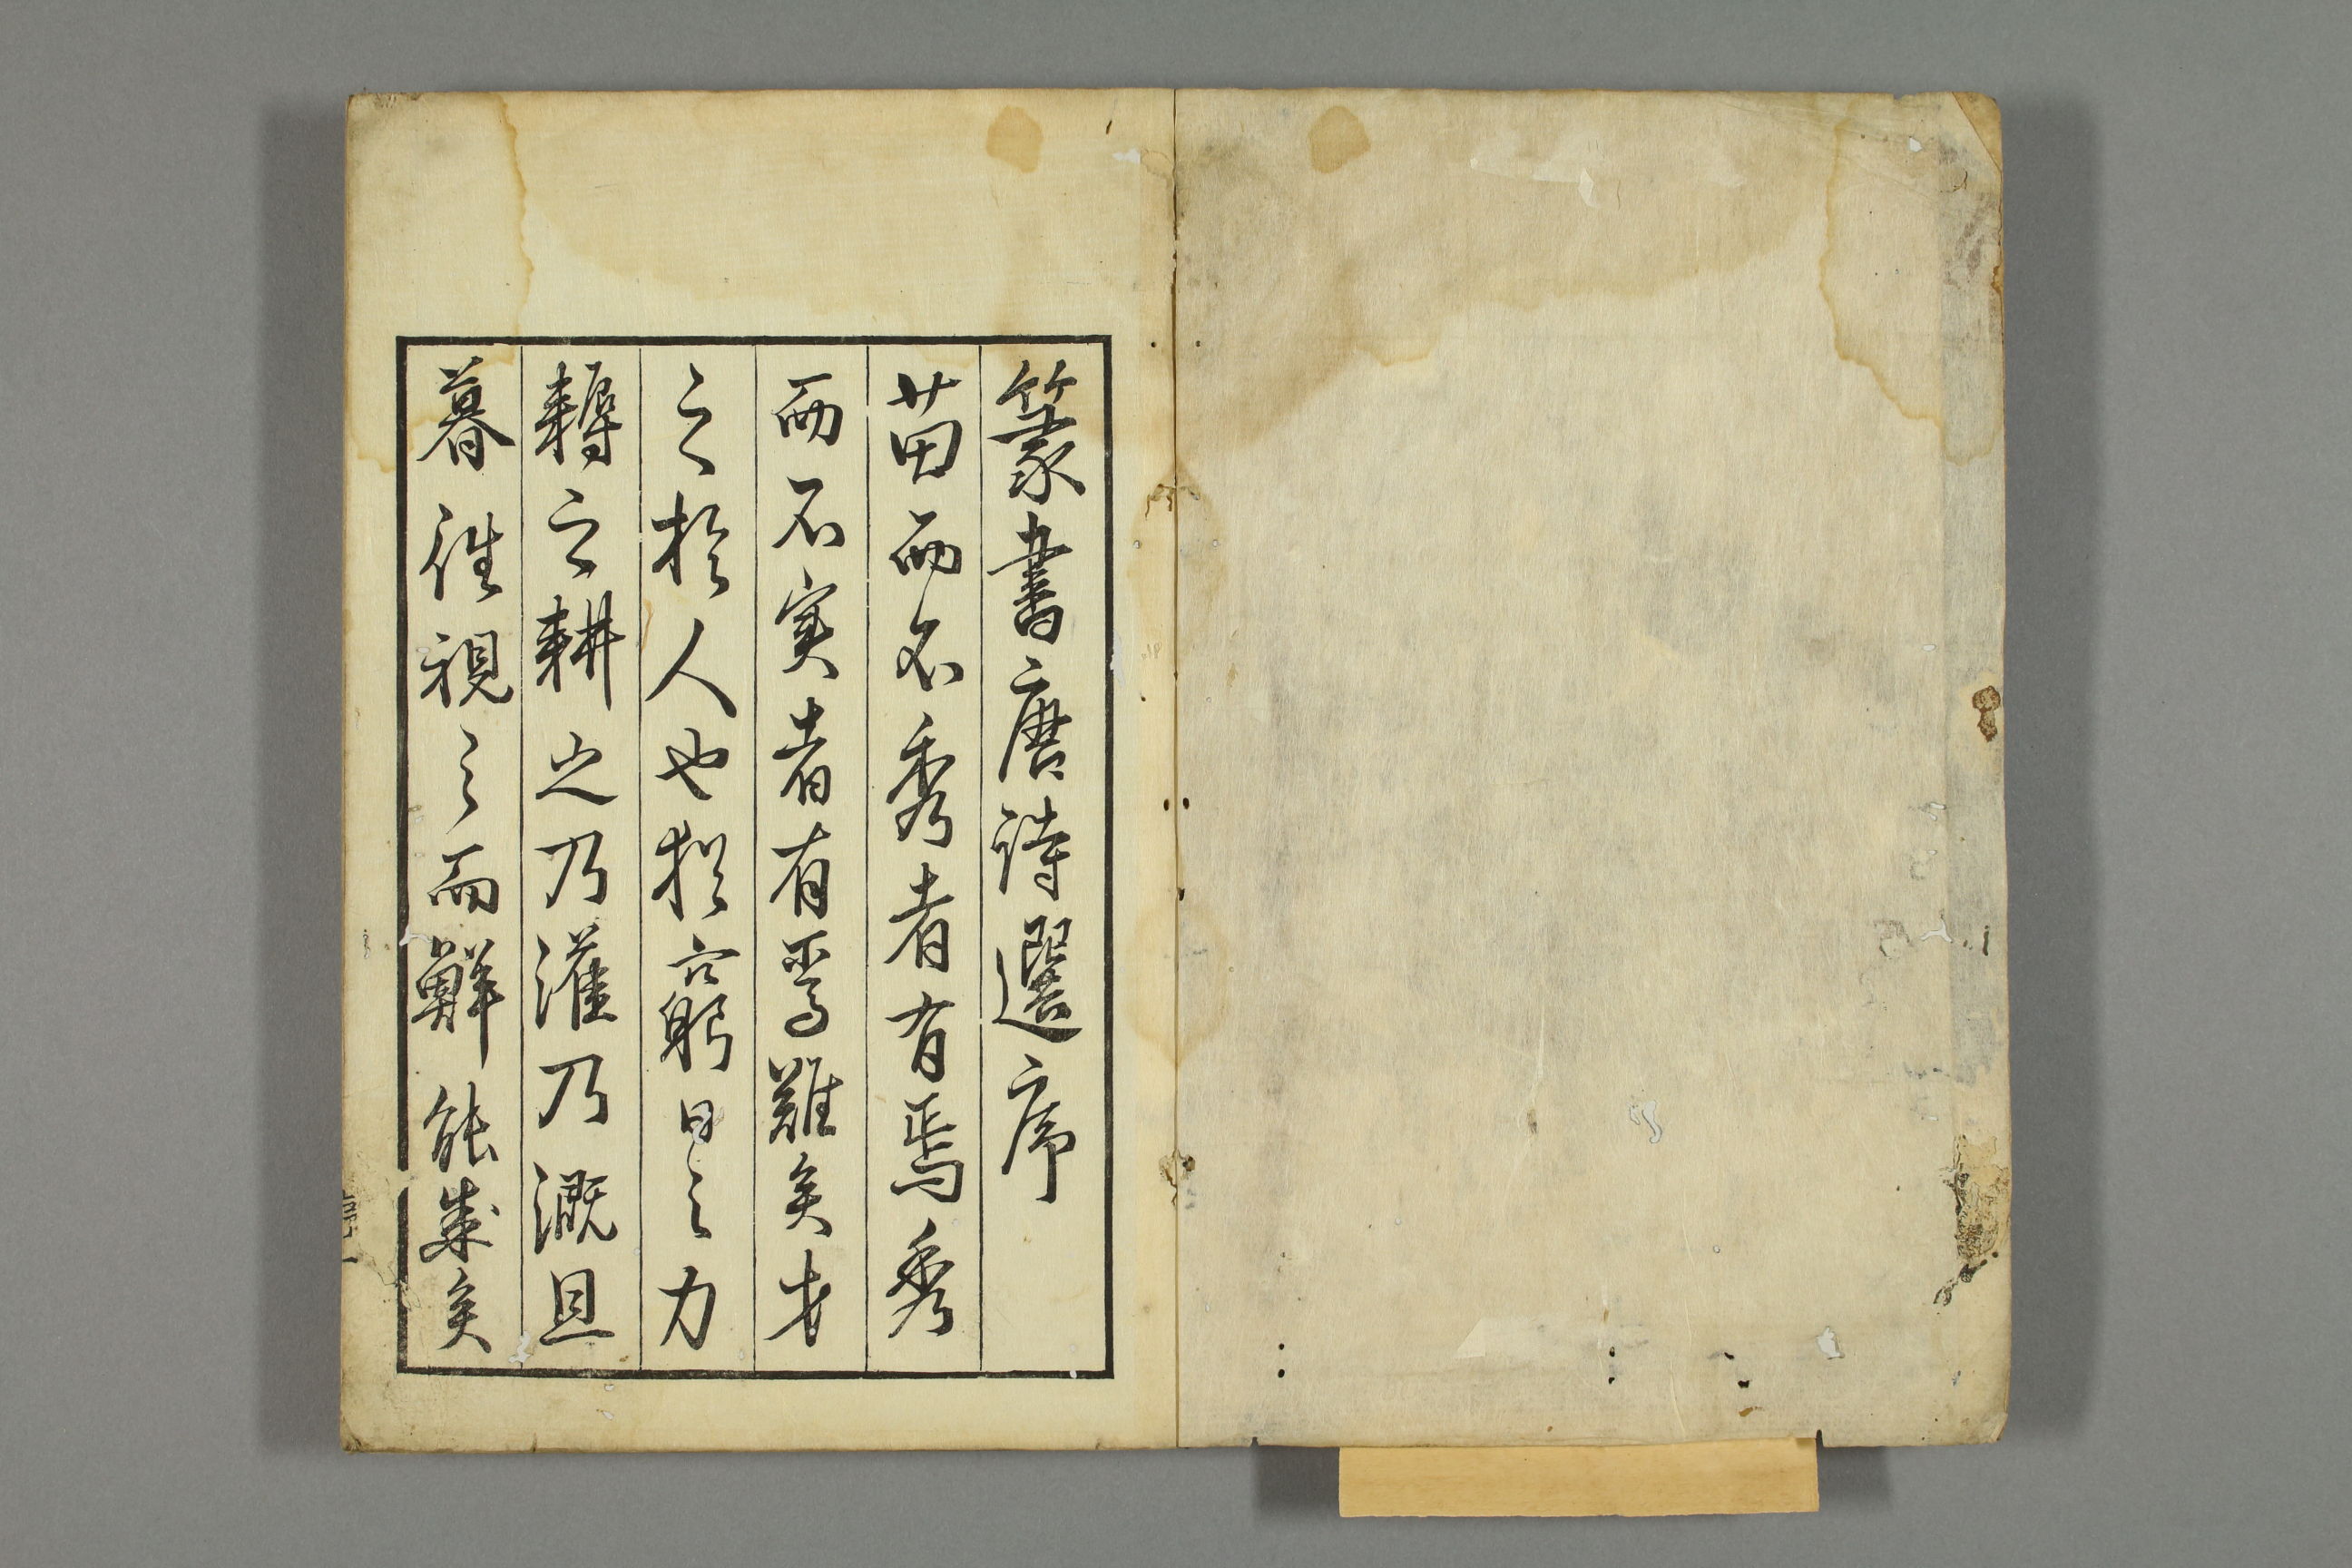 篆書唐詩選序
苗而不秀者有焉秀
而不実者有焉難矣才
之於人也猶窮日之力
耨之耕之乃灌乃溉且
暮往視之而鮮能成矣